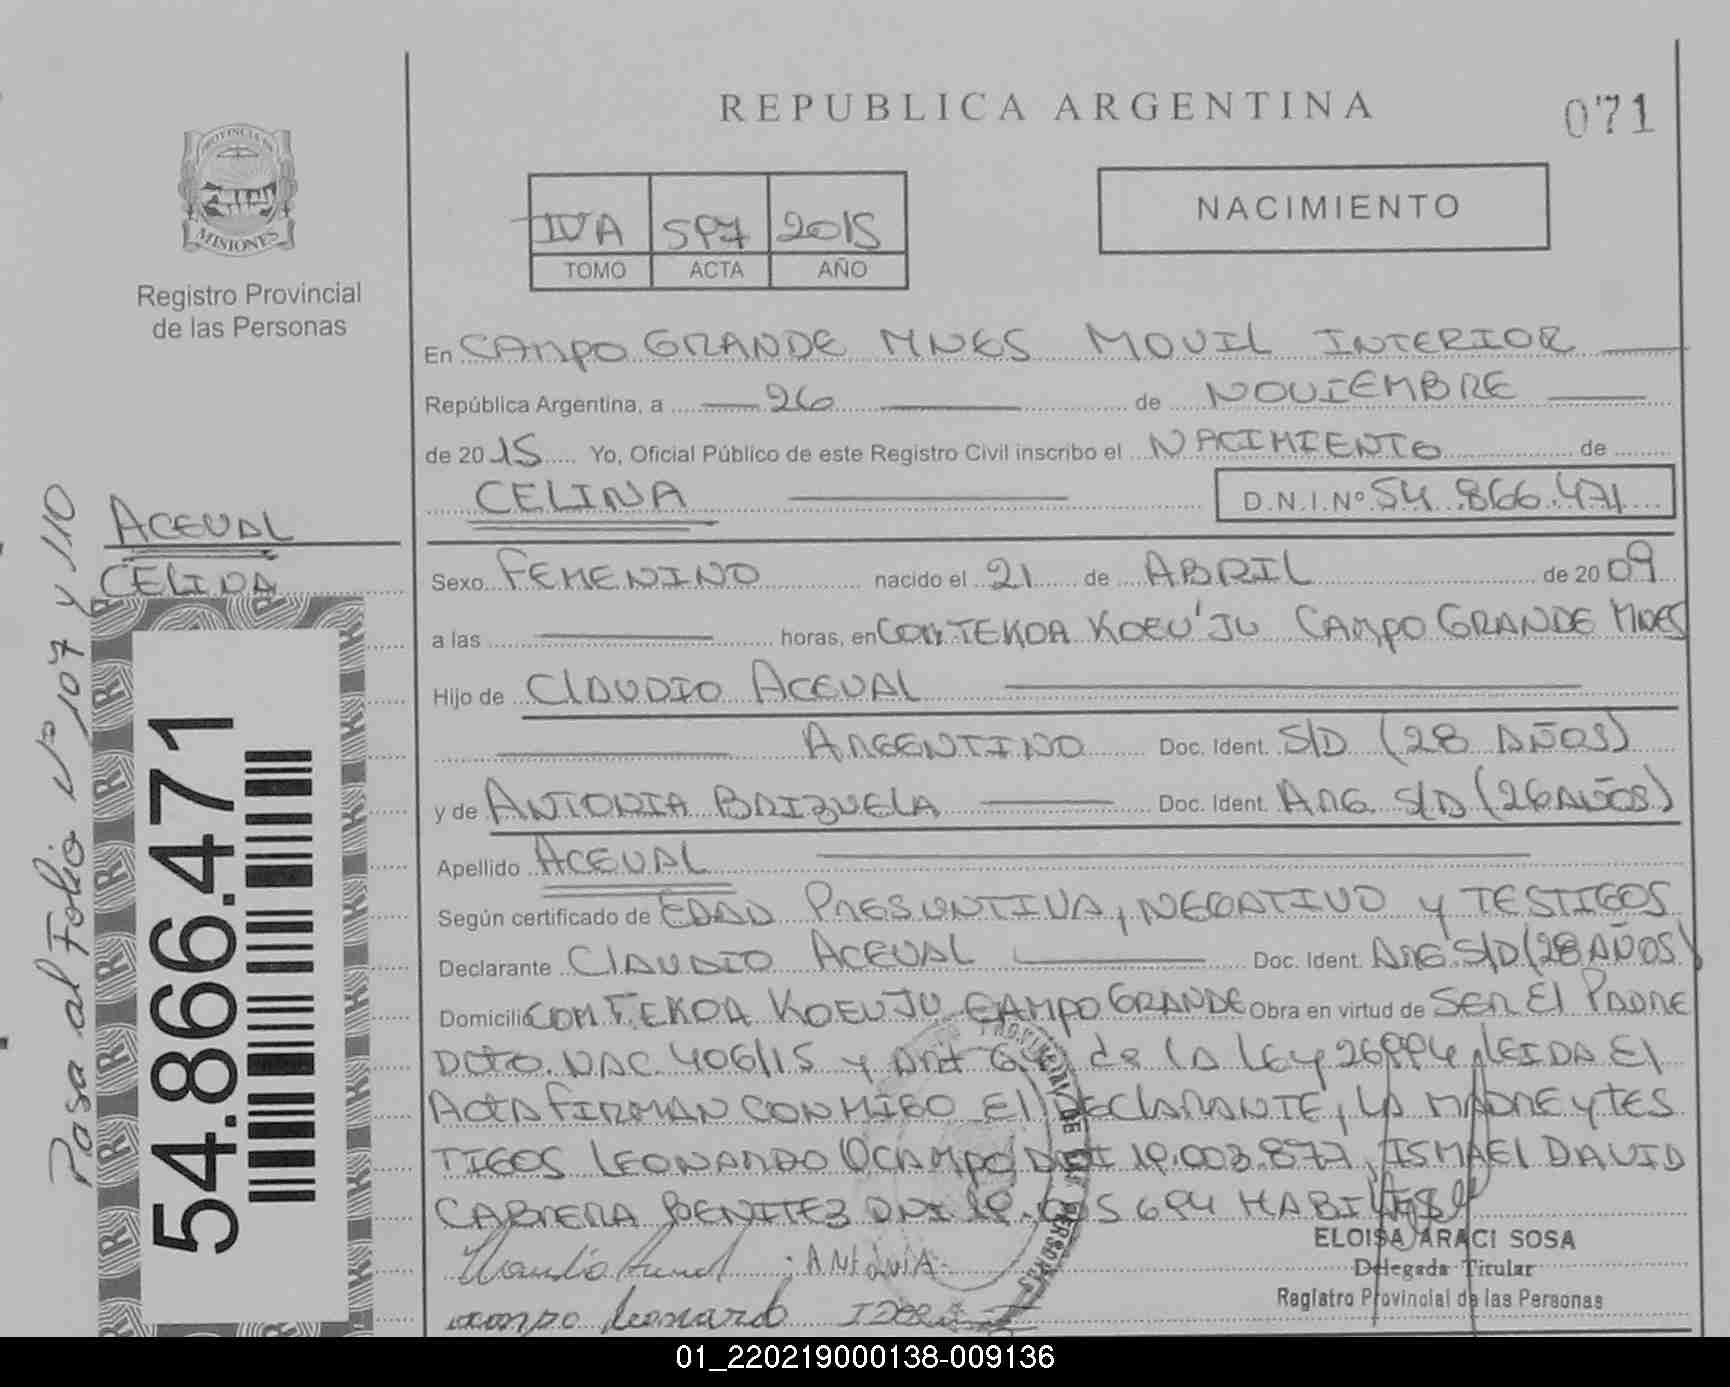 REPUBLICA ARGENTINA
071
PROVINCIA DE
MISIONES
Registro Provincial
de las Personas
IVA 597 2015
TOMO ACTA AÑO
NACIMIENTO
En CAMPO GRANDE MNES MOVIL INTERIOR
República Argentina, a 26 de NOVIEMBRE
de 2015 Yo, Oficial Público de este Registro Civil inscribo el NACIMIENTO de
CELINA D.N.I.Nº 54.866.471
ACEVAL
CELINA
Sexo FEMENINO nacido el 21 de ABRIL de 2009
a las horas, en COM. TEKOA KOEU'JU CAMPO GRANDE MNES
Hijo de CLAUDIO ACEVAL
ARGENTINO Doc. Ident. S/D (28 AÑOS)
y de ANTONIA BRIZUELA Doc. Ident. ARG. S/D (26 AÑOS)
Apellido ACEVAL
Según certificado de EDAD PRESUNTIVA, NEGATIVO y TESTIGOS
Declarante CLAUDIO ACEVAL Doc. Ident. ARG S/D (28 AÑOS)
Domicilio COM TEKOA KOEUJU CAMPO GRANDE Obra en virtud de SER El PADRE
DCTO. NAC. 406/15 y ART de LA LEy 26994 LEIDA El
ACTA FIRMAN CONMIGO El DECLARANTE, LA MADRE y TES
TIGOS LEONARDO OCAMPO DNI 19.003.877, ISMAEL DAVID
CABRERA BENITEZ DNI 694 HABILES
ocampo Leonardo
ELOISA ARACI SOSA
Delegada Titular
Registro Provincial de las Personas
PROVINCIAL DE LAS PERSONAS
Pasa al Folio Nº 107 y 110
54.866.471
01_220219000138-009136